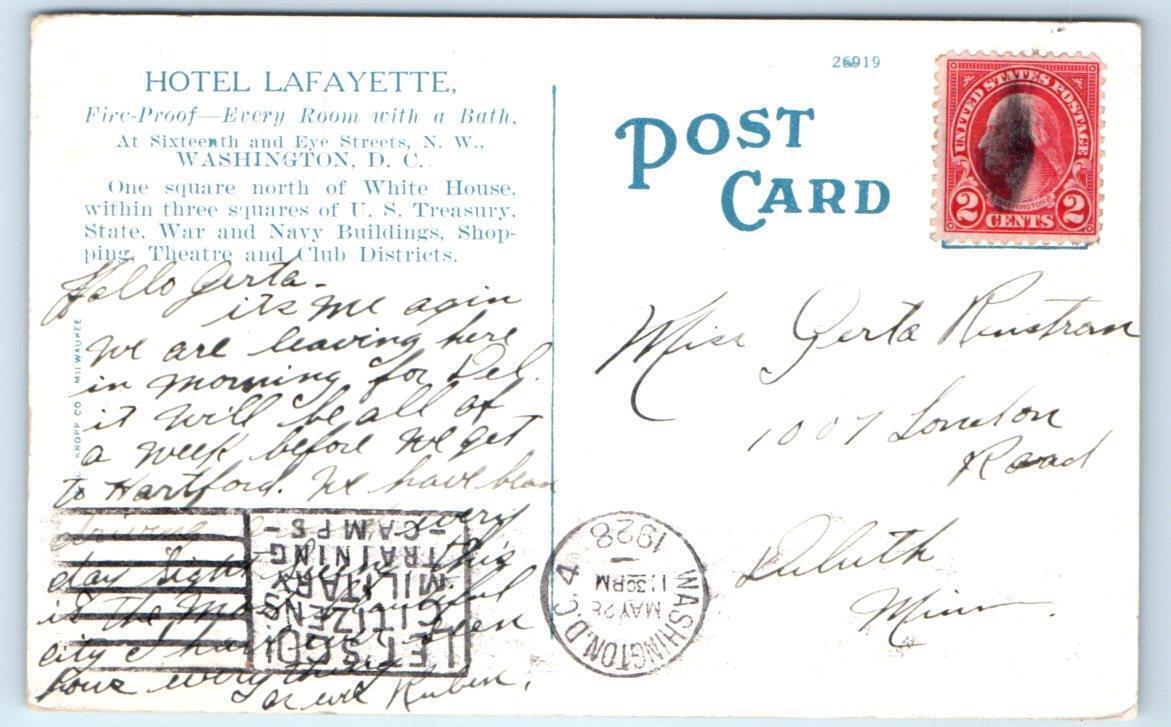 HOTEL LAFAYETTE,
Fire-Proof—Every Room with a Bath.
At Sixteenth and Eye Streets, N. W.,
WASHINGTON, D. C.
One square north of White House,
within three squares of U. S. Treasury,
State, War and Navy Buildings, Shop-
ping, Theatre and Club Districts.
Hello Gerta-
its me again
we are leaving here
in morning for Del.
it will be all of
a week before we get
to Hartford. We have been
driving every
day this
is the most
city I have ever seen
love everything
Ruben.
KROPP CO. MILWAUKEE
26919
POST
CARD
UNITED STATES POSTAGE
WASHINGTON
2 CENTS 2
Miss Gerta
1007 London
Road
Duluth
Minn.
WASHINGTON, D.C. 4
MAY 28
11 30 PM
1928
LET'S GO!
CITIZENS
MILITARY
TRAINING
-CAMPS-